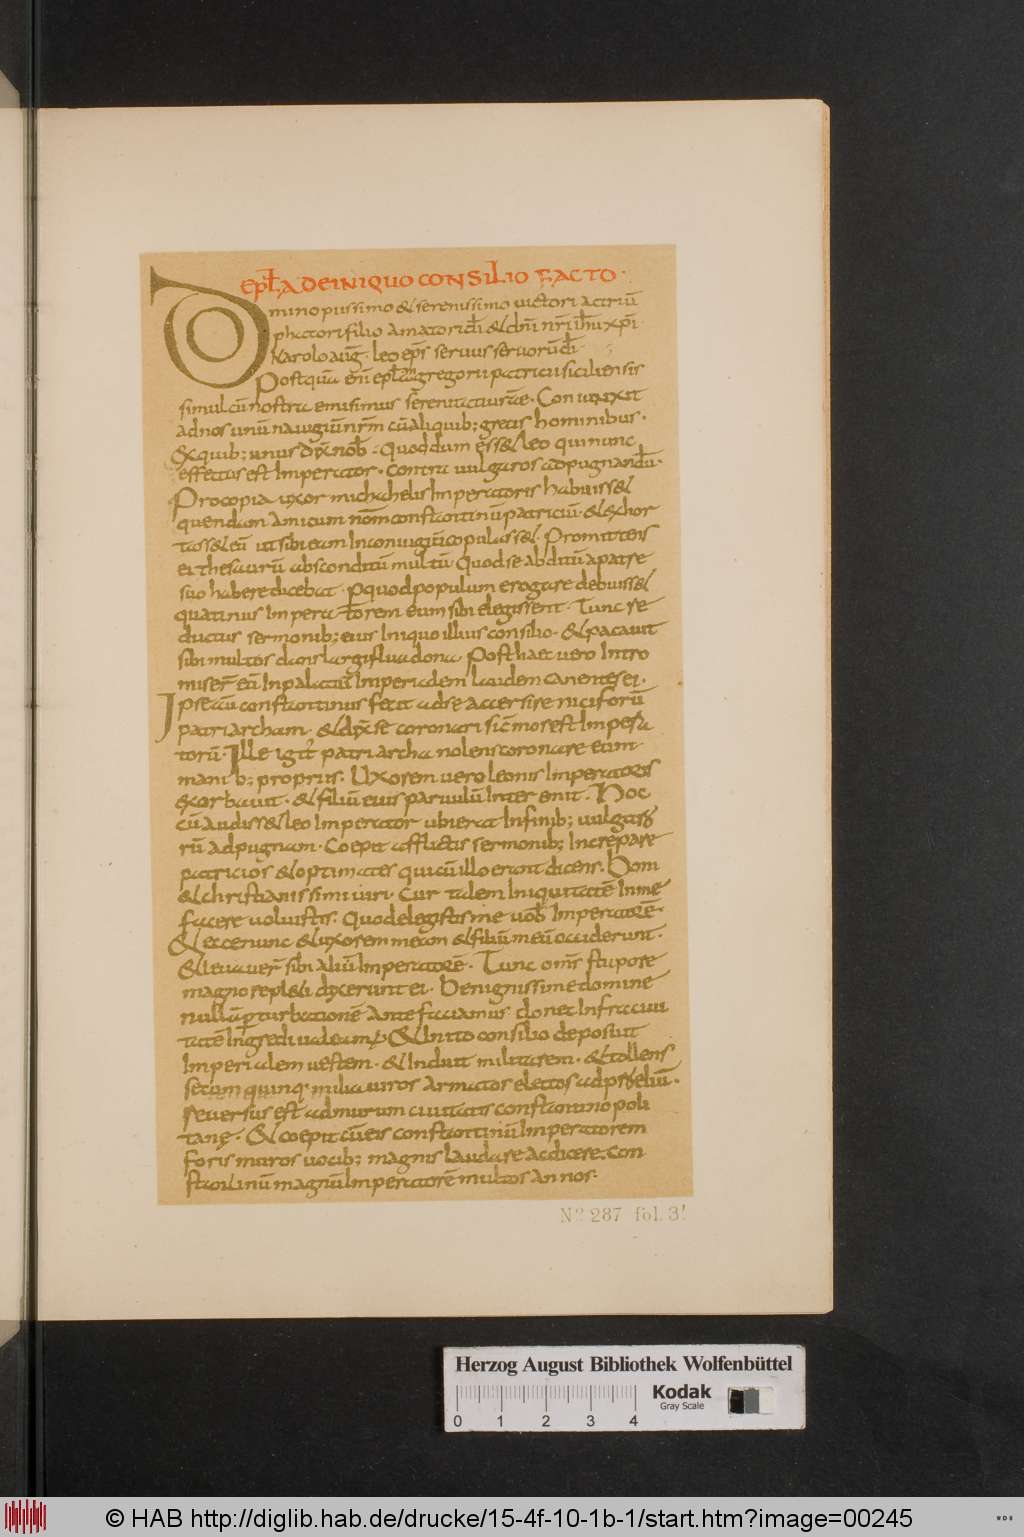 epła de iniquo consilio facto·
Domino piissimo & serenissimo victori ac triū
phatori filio amatori dī & dnī nrī ihu xpī
Karolo aug̅· leo ep̅s servus servorū dī·
Postquā enī epłam gregorii patricii siciliensis
simul cū nostra emisimus serenitati urae· Coniunxit
ad nos unū navigiū nrm̅ cū aliquib; grecis hominibus·
Ex quib; unus dix̅ nob̅· Quod dum ess& leo qui nunc
effectus est Imperator· contra uulgaros ad pugnandū·
Procopia uxor michahelis Imperatoris habuiss&
quendam amicum nom̅ constantinū patriciū· & exhor
tass& eū ut sibi eam In coniugiū copulass&· Promittens
ei thesaurū absconditū multū Quod se ab ditū a patre
suo habere dicebat· p quod populum erogare debuiss&
quatinus Imperatorem eum sibi elegissent· Tunc se
ductus sermonib; eius Iniquo illius consilio· & pacavit
sibi multos dans largiflua dona· Post haec vero Intro
miser̅ eū In palatiū Imperialem laudem canentes ei·
Ipse aut̅ constantinus fecit ad se accersire niciforū
patriarcham· & dix̅ se coronari sic̅ mos est Impera
torū· Ille igit̅ patriarcha nolens coronare eum
manib; propriis· Uxorem vero leonis Imperatoris
exorbavit· & filiū eius parvulū Interemit· Hoc
cū audiss& leo Imperator ubi erat In finib; uulgaro
rū ad pugnam· Coepit afflictis sermonib; Increpare
patricios & optimates qui cū illo erant dicens· Boni
& christianissimi viri· Cur talem Iniquitatē In me
facere voluistis· Quod elegistis me uob̅ Imperatorē·
& ecce nunc & uxorem meam & filiū meū occiderunt·
& levaver̅ sibi aliū Imperatorē· Tunc om̅s stupore
magno repl&i dixerunt ei· Benignissime domine
nullā pturbationē ante faciamus donec Infra civi
tatē Ingredi valeam; & Inito consilio deposuit
Imperialem vestem· & Induit militarem· & tollens
secum quinq; milia viros armatos electos ad p̅liū·
reversus est ad murum civitatis constantinopoli
tanę· & coepit cū eis constantinū Imperatorem
foris muros vocib; magnis laudare ac dicere; con
stantinū magnū Imperatorē multos annos·
Nº 287 fol. 3!
Herzog August Bibliothek Wolfenbüttel
0 1 2 3 4
Kodak
Gray Scale
© HAB http://diglib.hab.de/drucke/15-4f-10-1b-1/start.htm?image=00245